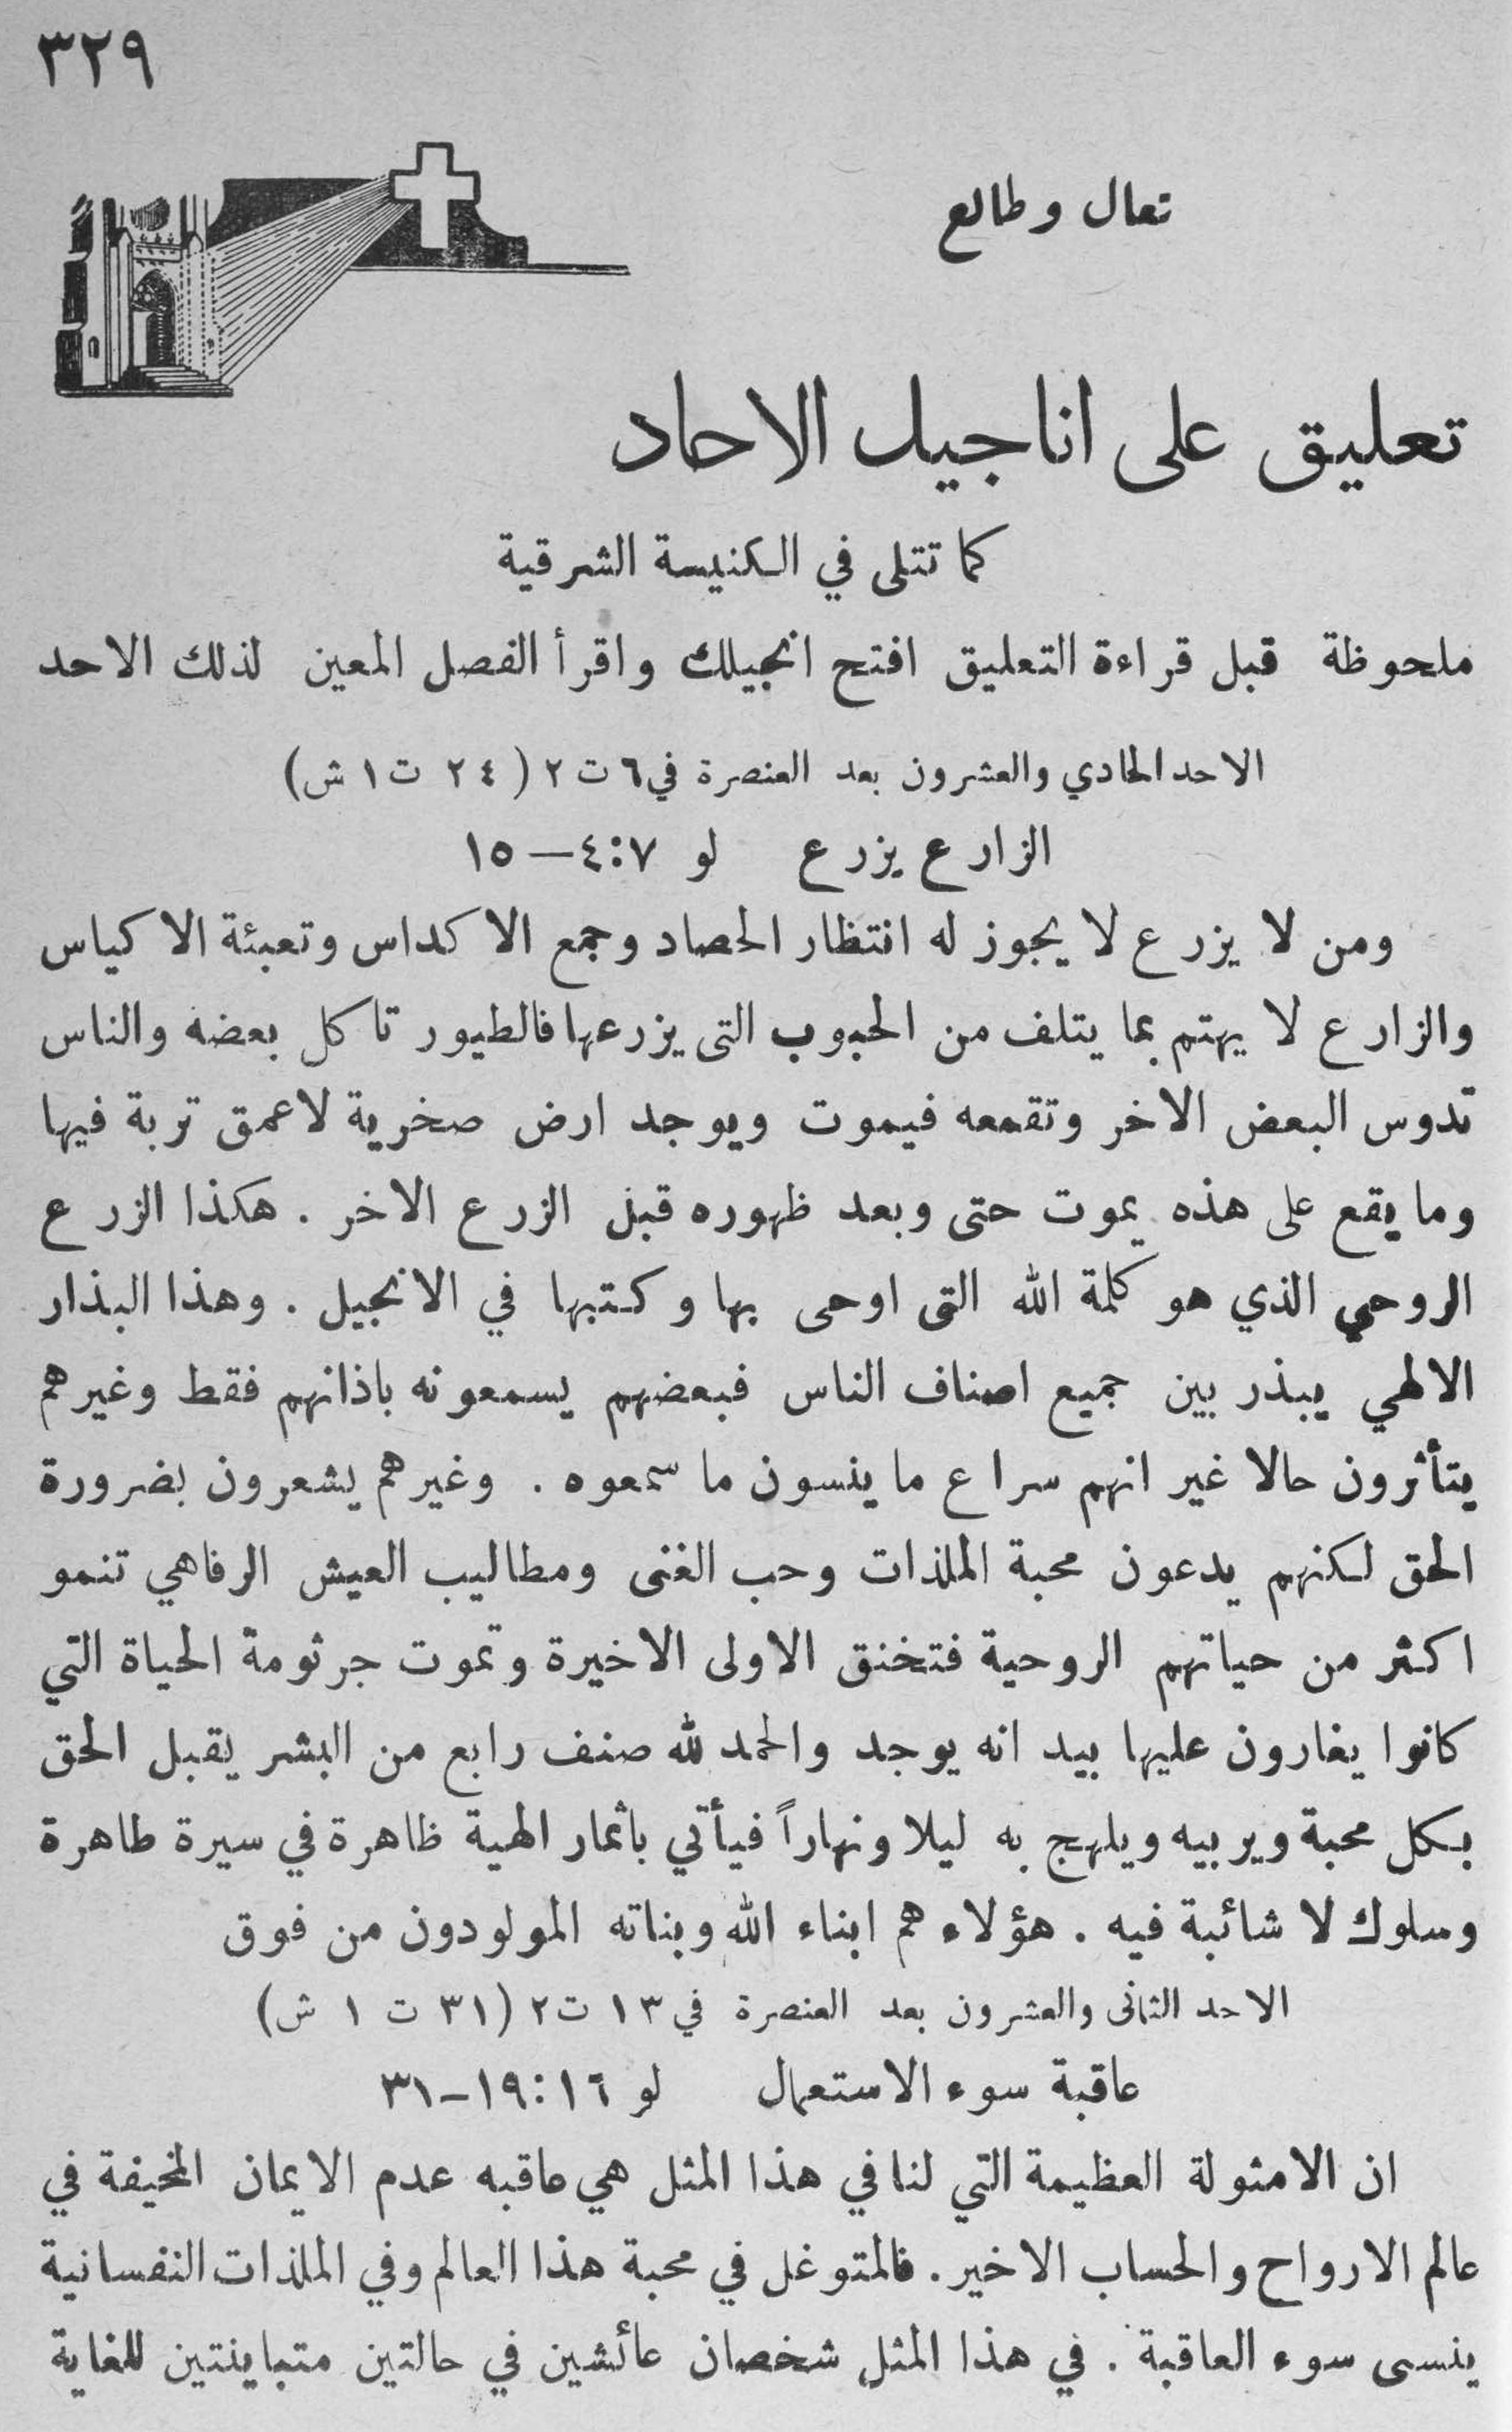 ٣٢٩
تعال وطالع
تعليق على اناجيل الاحاد
كما تتلى في الكنيسة الشرقية
ملحوظة قبل قراءة التعليق افتح انجيلك واقرأ الفصل المعين لذلك الاحد
الاحد الحادي والعشرون بعد العنصرة في ٦ ت ٢ (٢٤ ت ١ ش)
الزارع يزرع لو ٧:٤—١٥
ومن لا يزرع لا يجوز له انتظار الحصاد وجمع الاكداس وتعبئة الاكياس
والزارع لا يهتم بما يتلف من الحبوب التى يزرعها فالطيور تاكل بعضه والناس
تدوس البعض الاخر وتقمعه فيموت ويوجد ارض صخرية لا عمق تربة فيها
وما يقع على هذه يموت حتى وبعد ظهوره قبل الزرع الاخر . هكذا الزرع
الروحي الذي هو كلمة الله التى اوحى بها وكتبها في الانجيل . وهذا البذار
الالهي يبذر بين جميع اصناف الناس فبعضهم يسمعونه باذانهم فقط وغيرهم
يتأثرون حالا غير انهم سراع ما ينسون ما سمعوه . وغيرهم يشعرون بضرورة
الحق لكنهم يدعون محبة الملذات وحب الغنى ومطاليب العيش الرفاهي تنمو
اكثر من حياتهم الروحية فتخنق الاولى الاخيرة وتموت جرثومة الحياة التي
كانوا يغارون عليها بيد انه يوجد والحمد لله صنف رابع من البشر يقبل الحق
بكل محبة ويربيه ويلهج به ليلا ونهاراً فيأتي باثمار الهية ظاهرة في سيرة طاهرة
وسلوك لا شائبة فيه . هؤلاء هم ابناء الله وبناته المولودون من فوق
الاحد الثانى والعشرون بعد العنصرة في ١٣ ت ٢ (٣١ ت ١ ش)
عاقبة سوء الاستعمال لو ١٦:١٩—٣١
ان الامثولة العظيمة التي لنا في هذا المثل هي عاقبه عدم الايمان المخيفة في
عالم الارواح والحساب الاخير . فالمتوغل في محبة هذا العالم وفي الملذات النفسانية
ينسى سوء العاقبة . في هذا المثل شخصان عائشين في حالتين متباينتين للغاية